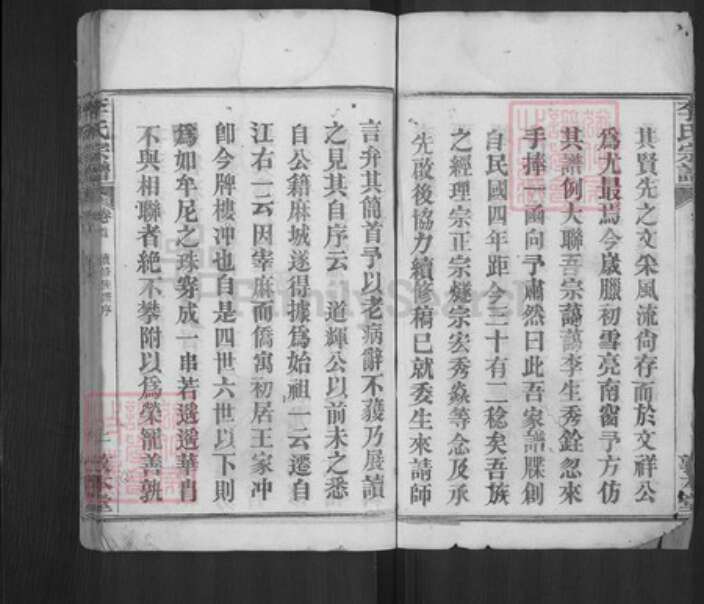 其賢先之文采風流尙存而於文祥公
爲尤最焉今歲臘初雪亮南窗予方仿
其譜例大聯吾宗藹藹李生秀銓忽來
手捧一函向予肅然曰此吾家譜牒創
自民國四年距今三十有二稔矣吾族
之經理宗正宗燧宗宏秀焱等念及承
先啟後協力續修稿已就委生來請師
言弁其簡首予以老病辭不獲乃展讀
之見其自序云 道輝公以前未之悉
自公籍麻城遂得據爲始祖一云遷自
江右一云因宰麻而僑寓初居王家冲
卽今牌樓冲也自是四世六世以下則
爲如牟尼之珠穿成一串若遞遞華胄
不與相聯者絶不攀附以爲榮寵善孰
李氏宗譜
卷首
一
敦本堂
李氏宗譜
FamilySearch